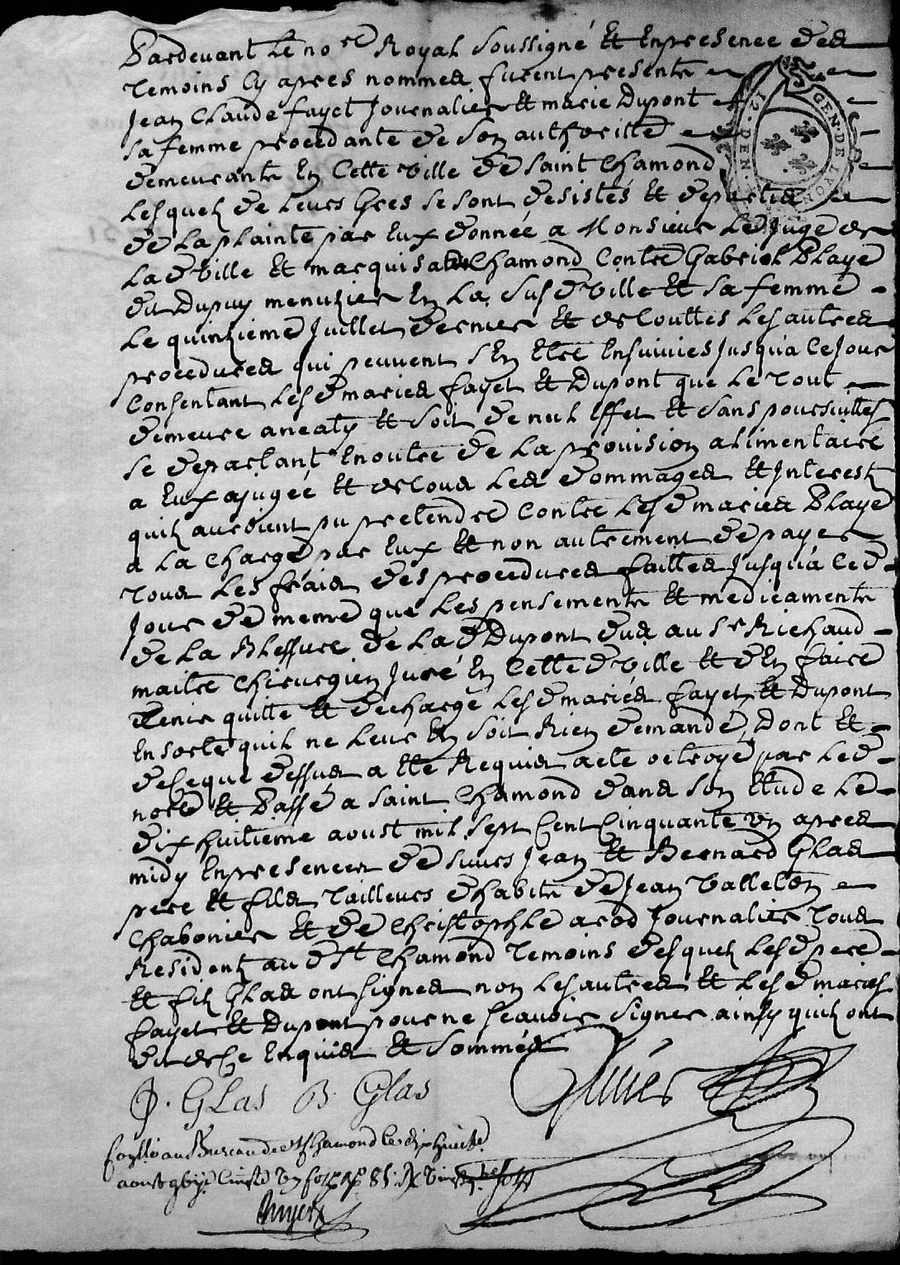 Pardevant Le no.re Royal Soussigné Et Enpresence des
Temoins Cy apres nommes furent presents
Jean Claude fayet Journalier Et marie Dupont
sa femme procedante de son authorité
demeurants En Cette ville de Saint Chamond
Lesquels de Leurs Gres se sont desistés Et departis
de La plainte par Eux donnée a Monsieur Le Juge de
La d ville Et marquisat de Chamond Contre Gabriel Blaye
du Dupuy menuzier En La Susd ville Et sa femme
Le quinzieme Juillet dernier Et de touttes Les autres
procedures qui peuvent s'En Etre Ensuivies Jusqu'a Ce Jour
Consentant Les d maries fayet Et Dupont que Le Tout
demeure aneaty Et soit de nul Effet Et sans poursuittes
se departant En outre de La provision alimentaire
a Eux ajugée Et de tous Les dommages Et Interest
quils auroient pu pretendre Contre Les d maries Blaye
a La Charge par Eux Et non autrement de payer
Tous Les frais des procedures faittes Jusqu'a Ce d
Jour de meme que Les pensements Et medicaments
de La Blessure de La d Dupont dus au Sr Richaud
maitre Chirurgien Juré En Cette d ville Et d'En faire
Tenir quitte Et decharge Les d maries fayet Et Dupont
En sorte quil ne Leur En soit Rien demandé, Dont Et
de Ceque dessus a Ete Requis acte octroyé par Le d
no.re Et Passé a Saint Chamond dans son Etude Le
dix huitieme aoust mil sept Cent Cinquante un apres
midy Enpresence de sieurs Jean Et Bernard Glas
pere Et fils Tailleurs d'habits de Jean Valleton
Chabonier Et de Christophle acod Journalier Tous
Residents au d St Chamond Temoins desquels Les d pere
Et fils Glas ont signes non Les autres Et Les d maries
fayet Et Dupont pour ne scavoir signer ainsy quils ont
dit de Ce Enquis Et Sommés
J. GLas B. Glas
au Bureau de St Chamond le dix huit
aoust
GEN. DE LION
12. DEN.